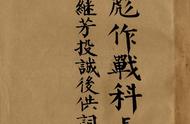 彪作戰科長
繼芳投誠後供詞